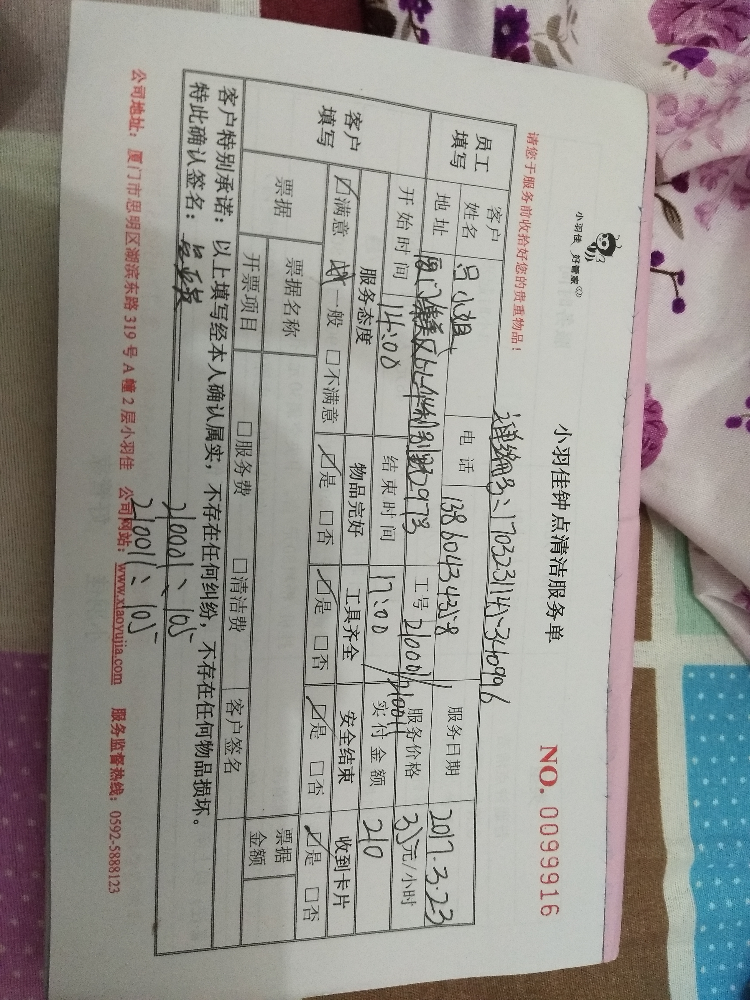 小羽佳 好管家
小羽佳钟点清洁服务单
NO. 0099916
请您于服务前收拾好您的贵重物品！
员工填写
客户姓名 吕小姐 电话 13860434258 服务日期 2017.3.23
地址 厦门集美区 2973 工号 210001/210011 服务价格 35元/小时
开始时间 14:00 结束时间 17:00 实付金额 210
客户填写
服务态度 物品完好 工具齐全 安全结束 收到卡片
☑满意 □一般 □不满意 ☑是 □否 ☑是 □否 ☑是 □否 ☑是 □否
票据 票据名称 □服务费 □清洁费 客户签名 票据金额
开票项目
客户特别承诺：以上填写经本人确认属实，不存在任何纠纷，不存在任何物品损坏。
特此确认签名：
210001、105
210011、105
公司地址：厦门市思明区湖滨东路319号A幢2层小羽佳 公司网站：www.xiaoyujia.com 服务监督热线：0592-5888123